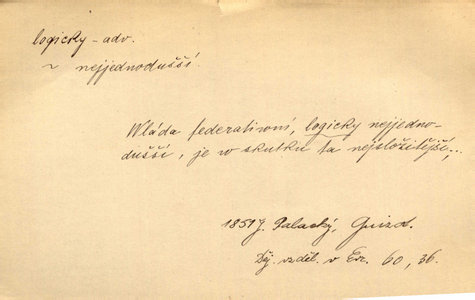 logicky – adv.
~ nejjednodušší.
Wláda federatiwní, logicky nejjedno-
dušší, je w skutku ta nejsložitější,..
1851 J. Palacký, Guizot.
Děj. vzděl. v Evr. 60, 36.